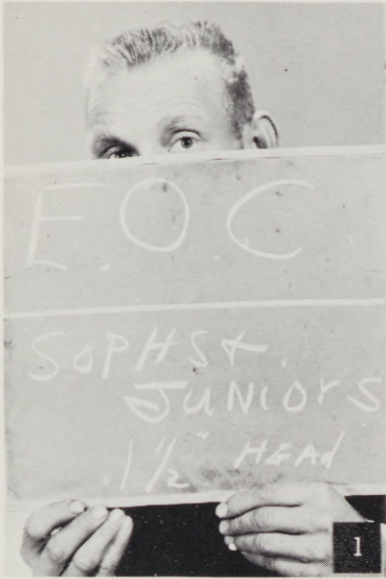 E.O.C
SOPHS &
JUNIORS
1 1/2" HEAD
1